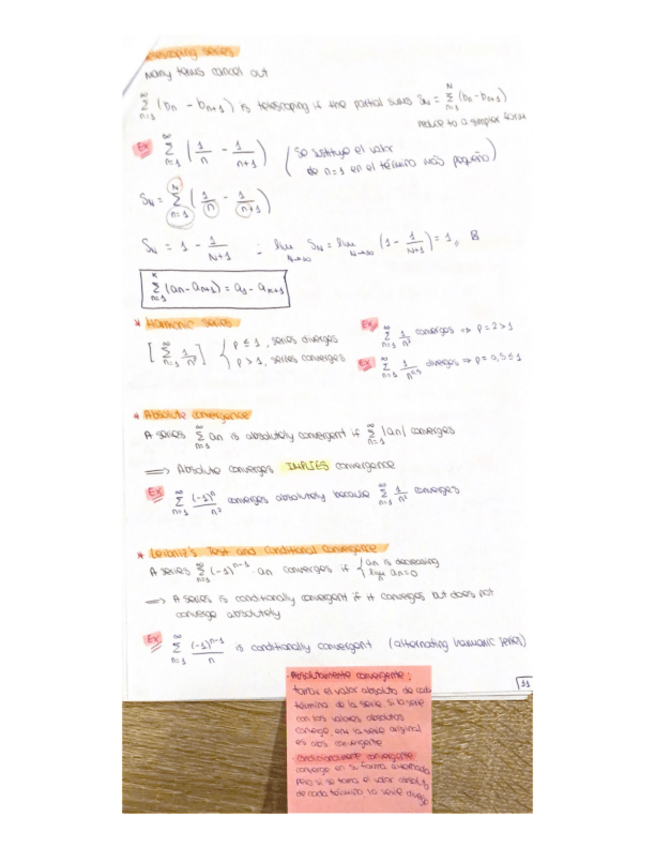 Telescoping series
Many terms cancel out
∞Σn=1 (bn - bn+1) is telescoping if the partial sums SN = NΣn=1 (bn - bn+1)
reduce to a simpler form
Ex ∞Σn=1 (1/n - 1/n+1) (se sustituye el valor
de n=1 en el término más pequeño)
SN = NΣn=1 (1/n - 1/n+1)
SN = 1 - 1/N+1 ; lim N→∞ SN = lim N→∞ (1 - 1/N+1) = 1
kΣn=1 (an - an+1) = a1 - ak+1
* Harmonic series
[∞Σn=1 1/np] { p ≤ 1, series diverges
p > 1, series converges
Ex ∞Σn=1 1/n² converges ⇒ p = 2 > 1
Ex ∞Σn=1 1/n0,5 diverges ⇒ p = 0,5 ≤ 1
* Absolute convergence
A series ∞Σn=1 an is absolutely convergent if ∞Σn=1 |an| converges
⇒ Absolute converges IMPLIES convergence
Ex ∞Σn=1 (-1)n/n² converges absolutely because ∞Σn=1 1/n² converges
* Leibniz's Test and Conditional Convergence
A series ∞Σn=1 (-1)n-1 · an converges if { an is decreasing
lim an = 0
⇒ A series is conditionally convergent if it converges but does not
converge absolutely
Ex ∞Σn=1 (-1)n-1/n is conditionally convergent (alternating harmonic series)
11
- Absolutamente convergente:
tomar el valor absoluto de cada
término de la serie. si la serie
con los valores absolutos
converge, ent la serie original
es abs convergente
- condicionalmente convergente
converge en su forma alternada
pero si se toma el valor absolut
de cada término la serie diverge